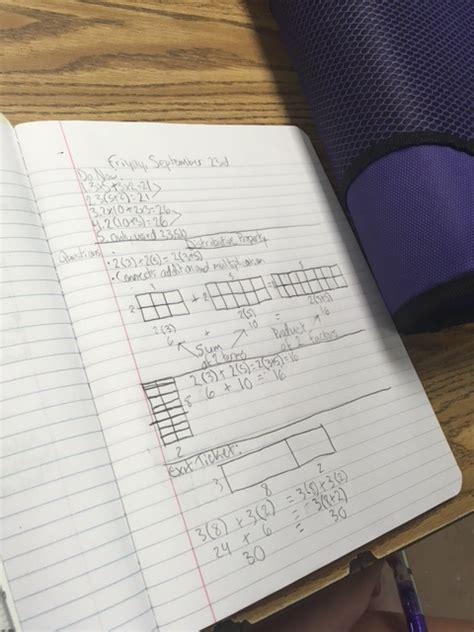 Friday, September 23rd
Do Now
1. 3x5+3x2=21
2. 3(5+2)=21
3. 2x10+2x3=26
4. 2(10+3)=26
5.
Distributive Property
Questions
• 2(3)+2(5)=2(3+5)
• Connects addition and multiplication
3 5
2 + 2 =
2(3) 2(5) 2(3+5)
6 + 10 = 16
Sum of 2 terms
Product of 2 factors
2(3)+2(5)=2(3+5)=16
6 + 10 = 16
8
2
Exit Ticket:
3
8 2
3(8)+3(2) = 3(8)+3(2)
24 + 6 = 3(8+2)
30 = 30